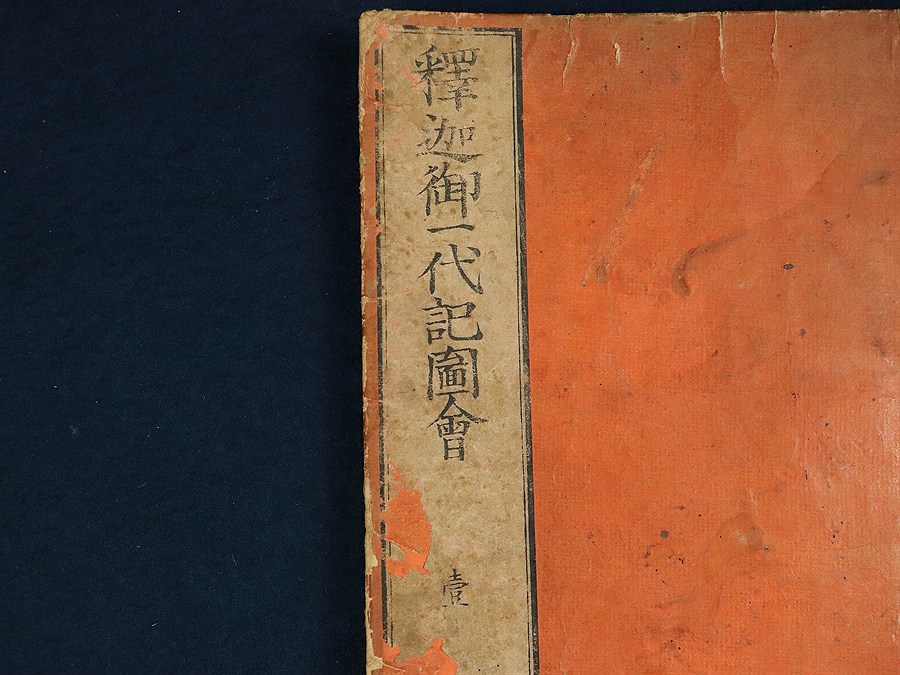 釋迦御一代記圖會
壹